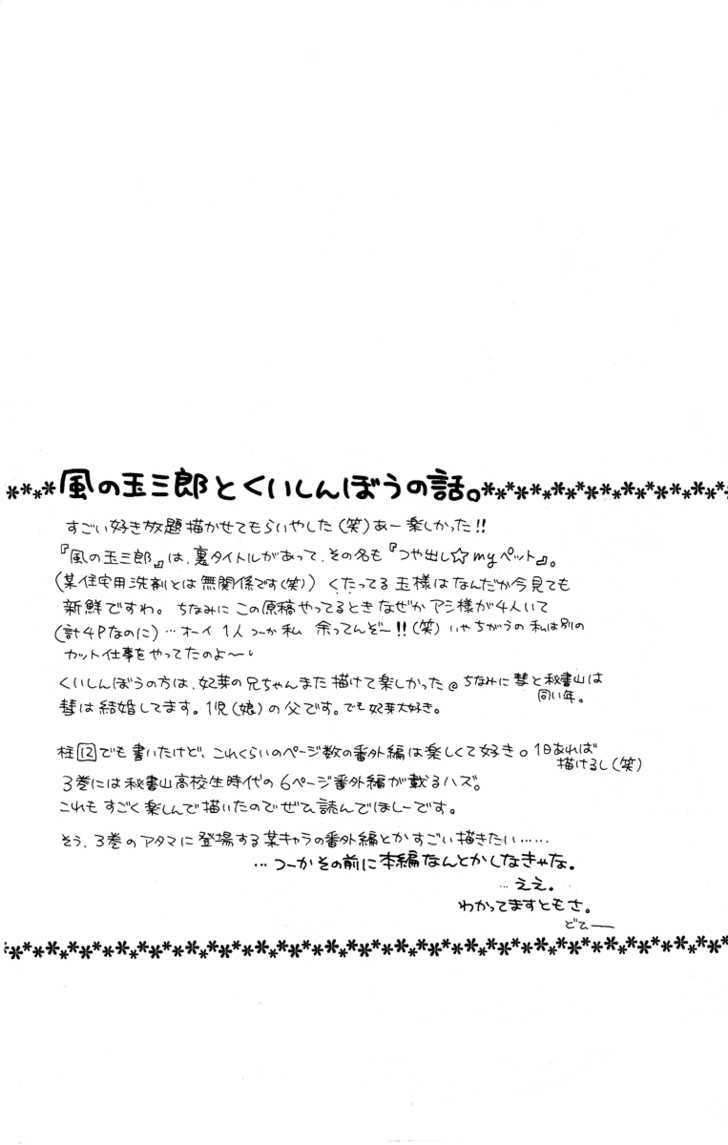 風の玉三郎とくいしんぼうの話。
すごい好き放題描かせてもらいやした(笑)あー楽しかった!!
『風の玉三郎』は、裏タイトルがあって、その名も『つや出し☆myペット』。
(某住宅用洗剤とは無関係です(笑))くたってる玉様はなんだか今見ても
新鮮ですわ。ちなみにこの原稿やってるときなぜかアシ様が4人いて
(計4Pなのに)…オーイ1人つーか私 余ってんぞー!!(笑)いやちがうの私は別の
カット仕事をやってたのよ〜。
くいしんぼうの方は、妃芽の兄ちゃんまた描けて楽しかった@ちなみに彗と秘書山は
同い年。
彗は結婚してます。1児(娘)の父です。でも妃芽大好き。
柱12でも書いたけど、これくらいのページ数の番外編は楽しくて好き。1日あれば
描けるし(笑)
3巻には秘書山高校生時代の6ページ番外編が載るハズ。
これもすごく楽しんで描いたのでぜひ読んでほしーです。
そう、3巻のアタマに登場する某キャラの番外編とかすごい描きたい……
…つーかその前に本編なんとかしなきゃな。
…ええ。
わかってますともさ。
どてー